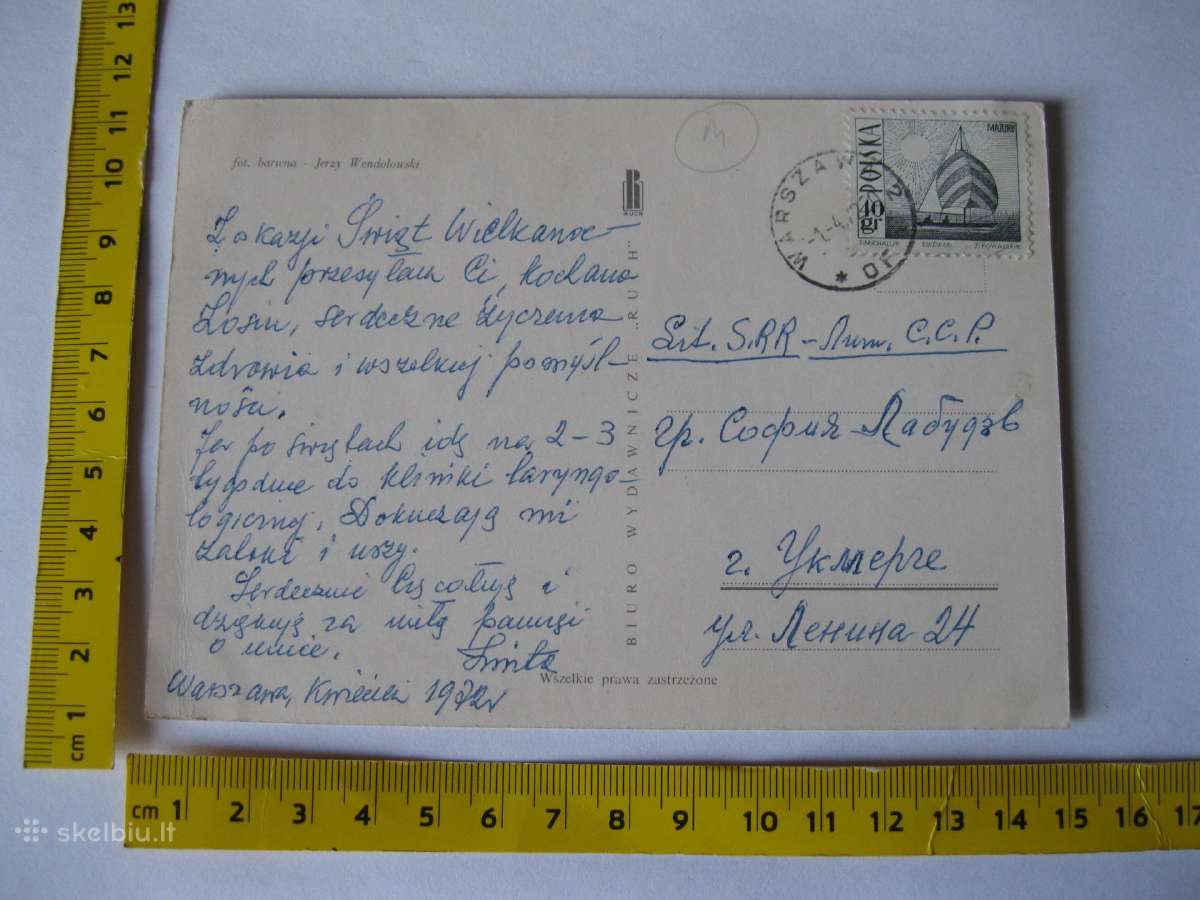 fot. barwna - Jerzy Wendołowski
Z okazji Świąt Wielkanoc-
nych przesyłam Ci, kochana
Zosiu, serdeczne życzenia
zdrowia i wszelkiej pomyśl-
ności.
Ja po świętach idę na 2-3
tygodnie do kliniki laryngo-
logicznej. Dokuczają mi
zatoki i uszy.
Serdecznie Cię całuję i
dziękuję za miłą pamięć
o mnie.
Warszawa, kwiecień 1972 r
RUCH
BIURO WYDAWNICZE „RUCH"
Wszelkie prawa zastrzeżone
WARSZAWA
-1.-4.
POLSKA
MAZURY
40 gr
Lit. S.R.R - Лит. С.С.Р.
гр. София Лабудзь
г. Укмерге
ул. Ленина 24
cm 1 2 3 4 5 6 7 8 9 10 11 12 13
cm 1 2 3 4 5 6 7 8 9 10 11 12 13 14 15 16 17
skelbiu.lt